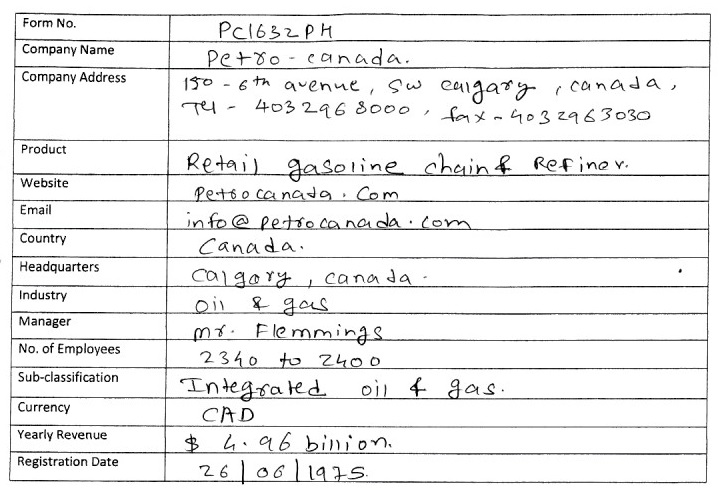 Form No. PC1632PH
Company Name Petro-canada.
Company Address 150-6th avenue, SW calgary, canada,
Tel - 4032968000, fax - 4032963030
Product Retail gasoline chain & Refiner.
Website Petrocanada.Com
Email info@petrocanada.com
Country Canada.
Headquarters Calgary, canada-
Industry oil & gas
Manager mr. Flemmings
No. of Employees 2340 to 2400
Sub-classification Integrated oil & gas.
Currency CAD
Yearly Revenue $ 4.96 billion.
Registration Date 26|06|1975.